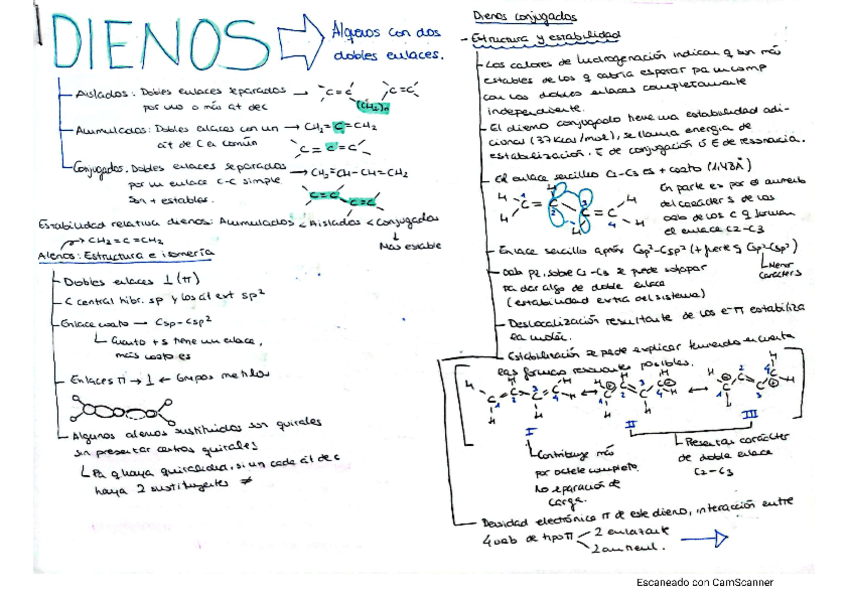 DIENOS
Alquenos con dos
dobles enlaces.
Aislados: Dobles enlaces separados
por uno o más át de C
C=C C=C
(CH₂)n
Acumulados: Dobles enlaces con un → CH₂=C=CH₂
át de C en común
C=C=C
Conjugados. Dobles enlaces separados → CH₂=CH-CH=CH₂
por un enlace C-C simple
Son + estables.
C=C C=C
Estabilidad relativa dienos: Acumulados < Aislados < Conjugados
Más estable
CH₂=C=CH₂
Alenos: Estructura e isomería
Dobles enlaces ⊥ (π)
C central hibr. sp y los át ext sp²
Enlace corto → Csp-Csp²
Cuanto + s tiene un enlace,
más corto es
Enlaces π → ⊥ ← Grupos metilos
Algunos alenos sustituidos son quirales
sin presentar centros quirales
Pa q haya quiralidad, si un cada át de C
haya 2 sustituyentes ≠
Dienos conjugados
Estructura y estabilidad
Los calores de hidrogenación indican q son más
estables de los q cabría esperar pa un comp
con los dobles enlaces completamente
independiente.
El dieno conjugado tiene una estabilidad adi-
cional (3'7 kcal/mol), se llama energía de
estabilización, E de conjugación ó E de resonancia.
El enlace sencillo C2-C3 es + corto (1.48Å)
En parte es por el aumento
del carácter s de los
orb de los C q forman
el enlace C2-C3
H 1 C=C 2 3 C=C 4 H
Enlace sencillo aprox Csp²-Csp² (+ fuerte q Csp³-Csp³)
Menor
carácter s
orb pz sobre C2-C3 se puede solapar
pa dar algo de doble enlace
(estabilidad extra del sistema)
Deslocalización resultante de los e⁻π estabiliza
la moléc.
Estabilización se puede explicar teniendo en cuenta
las formas resonantes posibles.
I
II
III
Contribuye más
por octete completo
No separación de
carga.
Presentan carácter
de doble enlace
C2-C3
Densidad electrónica π de este dieno, interacción entre
4 orb de tipo π
2 enlazante
2 antienl.
Escaneado con CamScanner